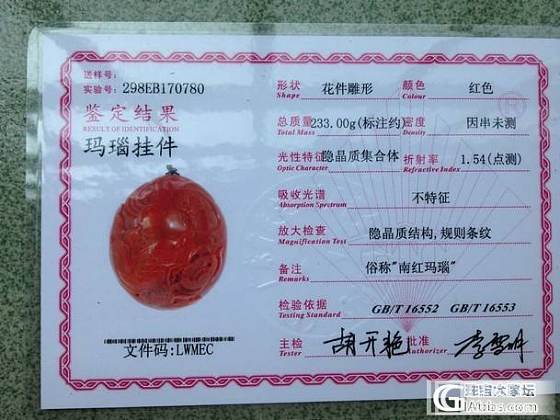 送样号:
实验号: 298EB170780
鉴定结果
RESULT OF IDENTIFICATION
玛瑙挂件
文件码:LWMEC
形状 花件雕形 颜色 红色
Shape Colour
总质量 233.00g(标注约) 密度 因串未测
Total Mass Density
光性特征 隐晶质集合体 折射率 1.54(点测)
Optic Character Refractive Index
吸收光谱 不特征
Absorption Spectrum
放大检查 隐晶质结构,规则条纹
Magnification Test
备注 俗称"南红玛瑙"
Remarks
检验依据 GB/T 16552 GB/T 16553
Testing Standard
主检 胡开艳 批准
Tester Authorizer